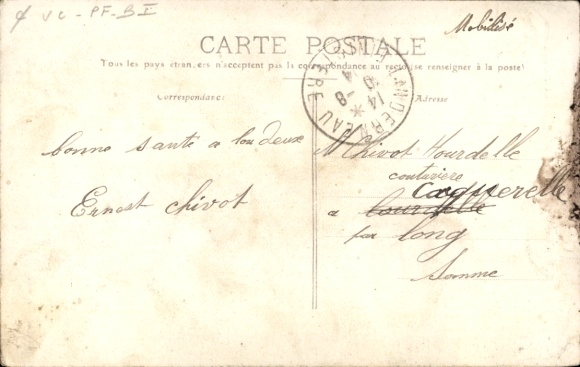 4 VC - PF - B I
Mobilisé
CARTE POSTALE
Tous les pays étrangers n'acceptent pas la correspondance au recto se renseigner à la poste
Correspondance
Adresse
LANDERNEAU
FINISTERE
14 - 8
14
bonne santé a tou deux
Ernest Chivot
M Chivot Hourdelle
Coquerelle
a
par long
Somme